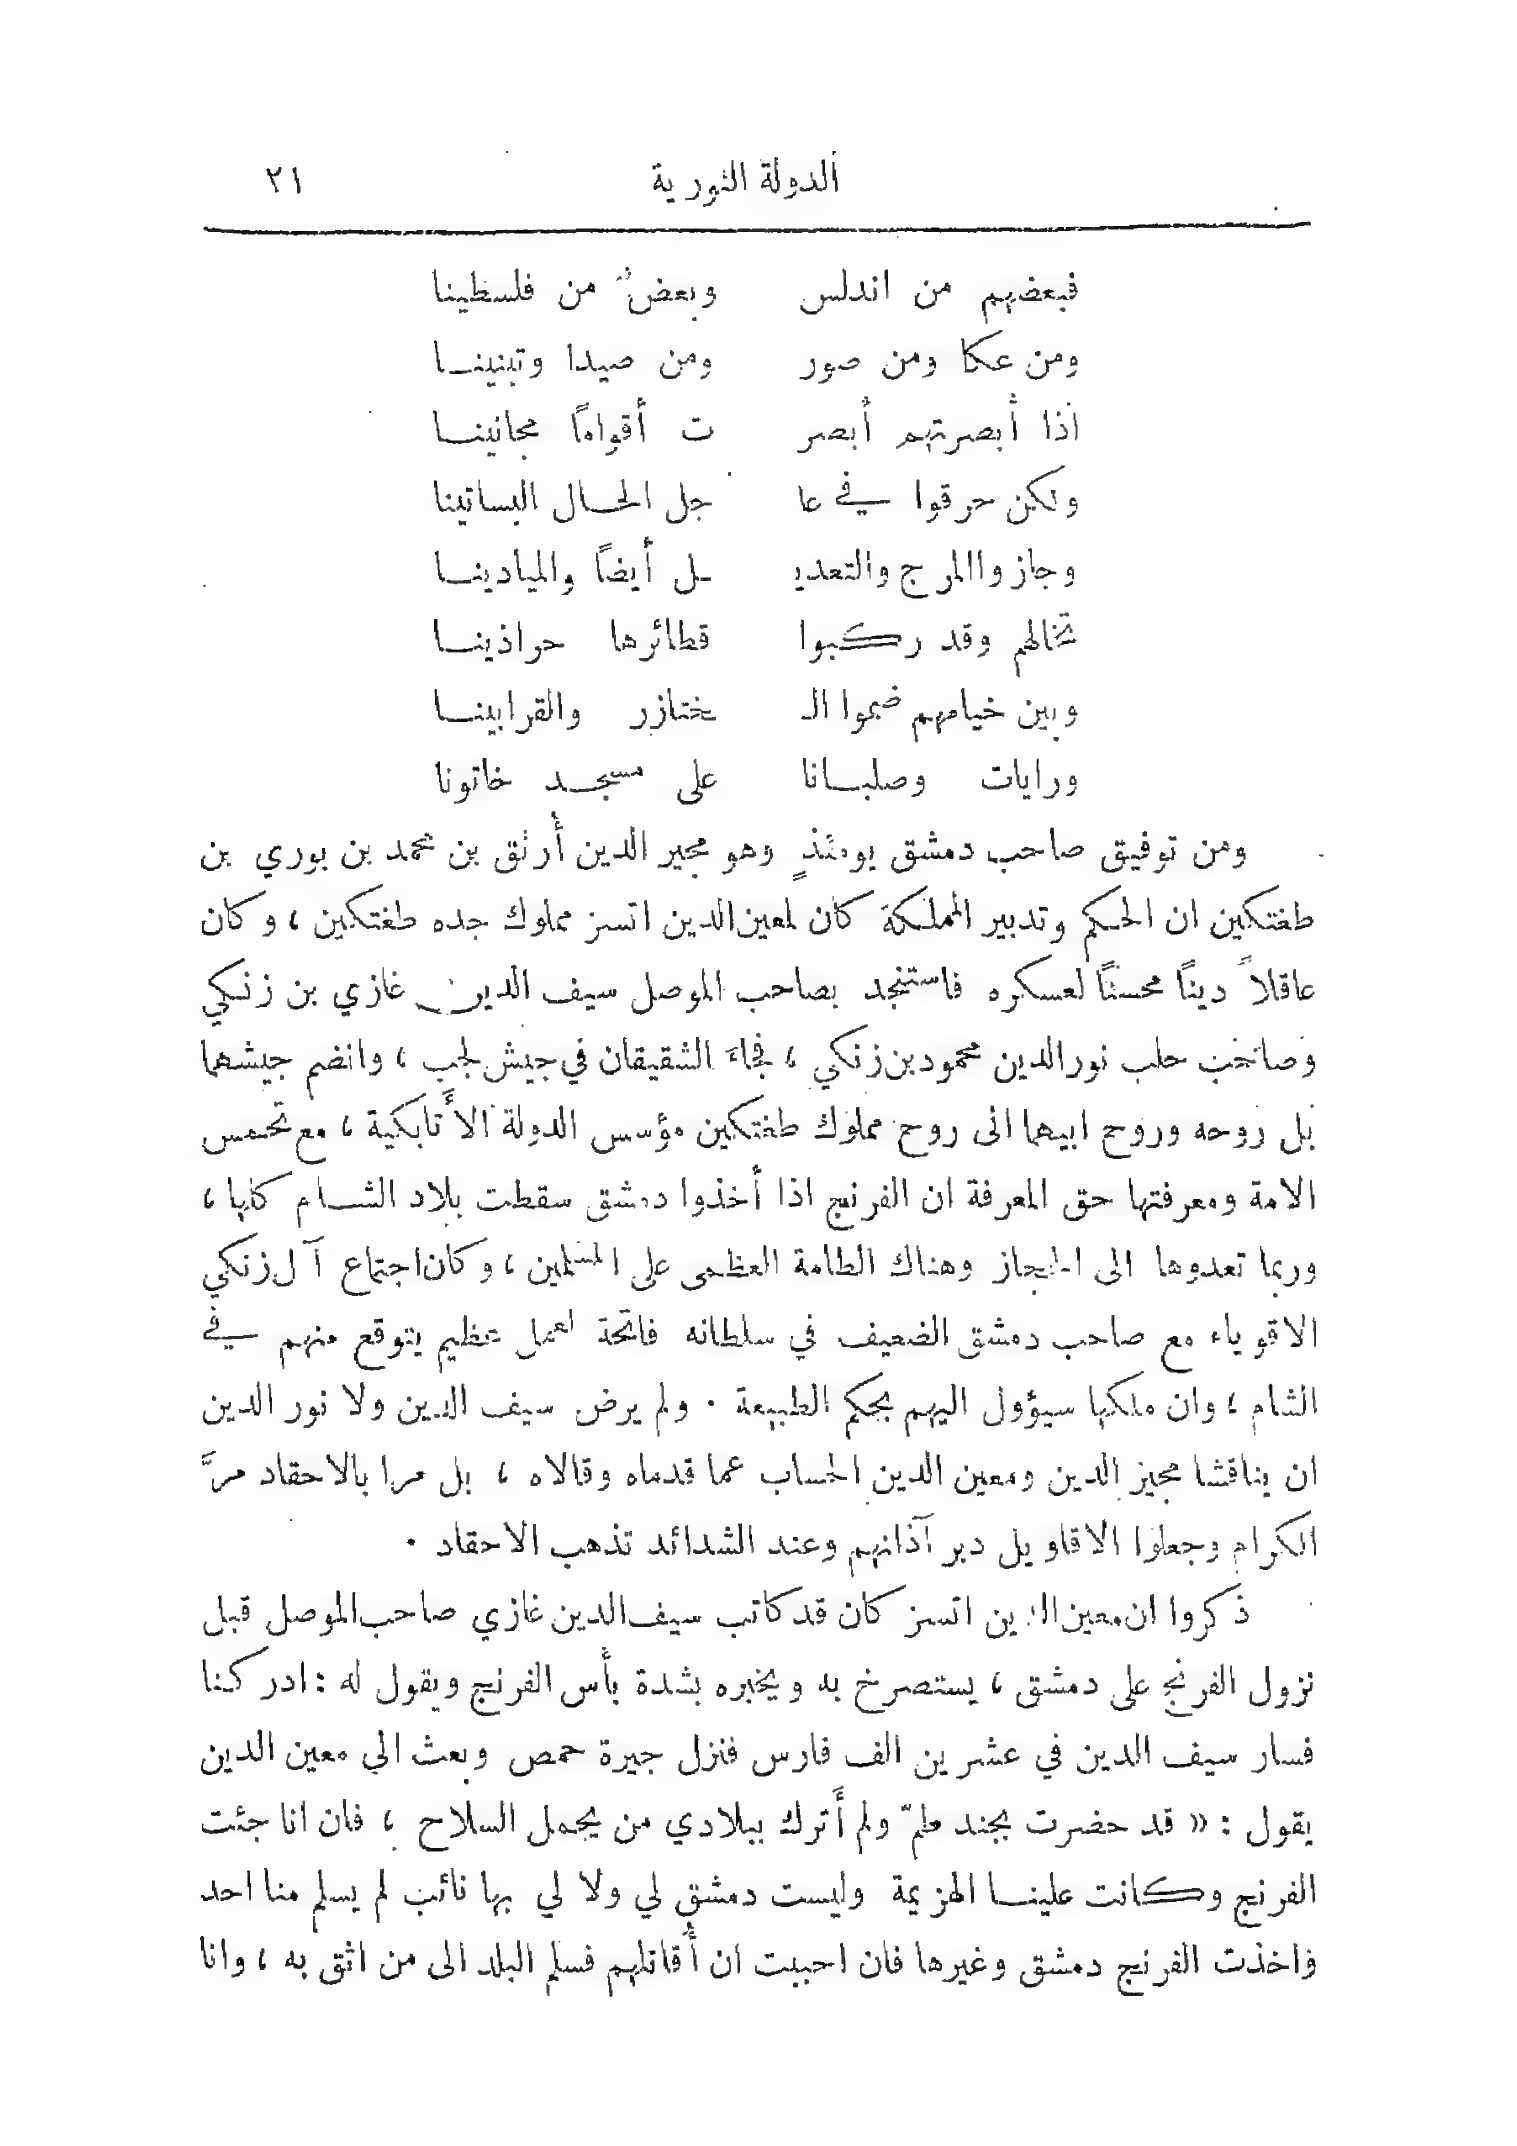 الدولة النورية ٢١
فبعضهم من اندلس وبعضٌ من فلسطينا
ومن عكا ومن صور ومن صيدا وتبنينـــا
اذا أبصرتهم أبصر ت أقواماً مجانينـــا
ولكن حرقوا في عا جل الحـــال البساتينا
وجازوا المرج والتعديـ ـل أيضاً والميادينـــا
تخالهم وقد ركبوا قطائرها حراذينـــا
وبين خيامهم ضموا الـ ـخنازر والقرابينـــا
ورايات وصلبـــانا على مسجـــد خاتونا
ومن توفيق صاحب دمشق يومئذٍ وهو مجير الدين أرتق بن محمد بن بوري بن
طغتكين ان الحكم وتدبير المملكة كان لمعين الدين اتسز مملوك جده طغتكين ، وكان
عاقلاً ديناً محسناً لعسكره فاستنجد بصاحب الموصل سيف الدين غازي بن زنكي
وصاحب حلب نور الدين محمود بن زنكي ، فجاءَ الشقيقان في جيش لجب ، وانضم جيشهما
بل روحه وروح ابيهما الى روح مملوك طغتكين مؤسس الدولة الأتابكية ، مع تحمس
الامة ومعرفتها حق المعرفة ان الفرنج اذا أخذوا دمشق سقطت بلاد الشـــام كلها ،
وربما تعدوها الى الحجاز وهناك الطامة العظمى على المسلمين ، وكان اجتماع آل زنكي
الاقوياء مع صاحب دمشق الضعيف في سلطانه فاتحة لعمل عظيم يتوقع منهم في
الشام ، وان ملكها سيؤول اليهم بحكم الطبيعة . ولم يرض سيف الدين ولا نور الدين
ان يناقشا مجير الدين ومعين الدين الحساب عما قدماه وقالاه ، بل مرا بالاحقاد مرَّ
الكرام وجعلوا الاقاويل دبر آذانهم وعند الشدائد تذهب الاحقاد .
ذكروا ان معين الدين اتسز كان قد كاتب سيف الدين غازي صاحب الموصل قبل
نزول الفرنج على دمشق ، يستصرخ به ويخبره بشدة بأس الفرنج ويقول له : ادركنا
فسار سيف الدين في عشرين الف فارس فنزل جيرة حمص وبعث الى معين الدين
يقول : « قد حضرت بجند طمّ ولم أَترك ببلادي من يحمل السلاح ، فان انا جئت
الفرنج وكانت علينـــا الهزيمة وليست دمشق لي ولا لي بها نائب لم يسلم منا احد
واخذت الفرنج دمشق وغيرها فان احببت ان أُقاتلهم فسلم البلد الى من اثق به ، وانا